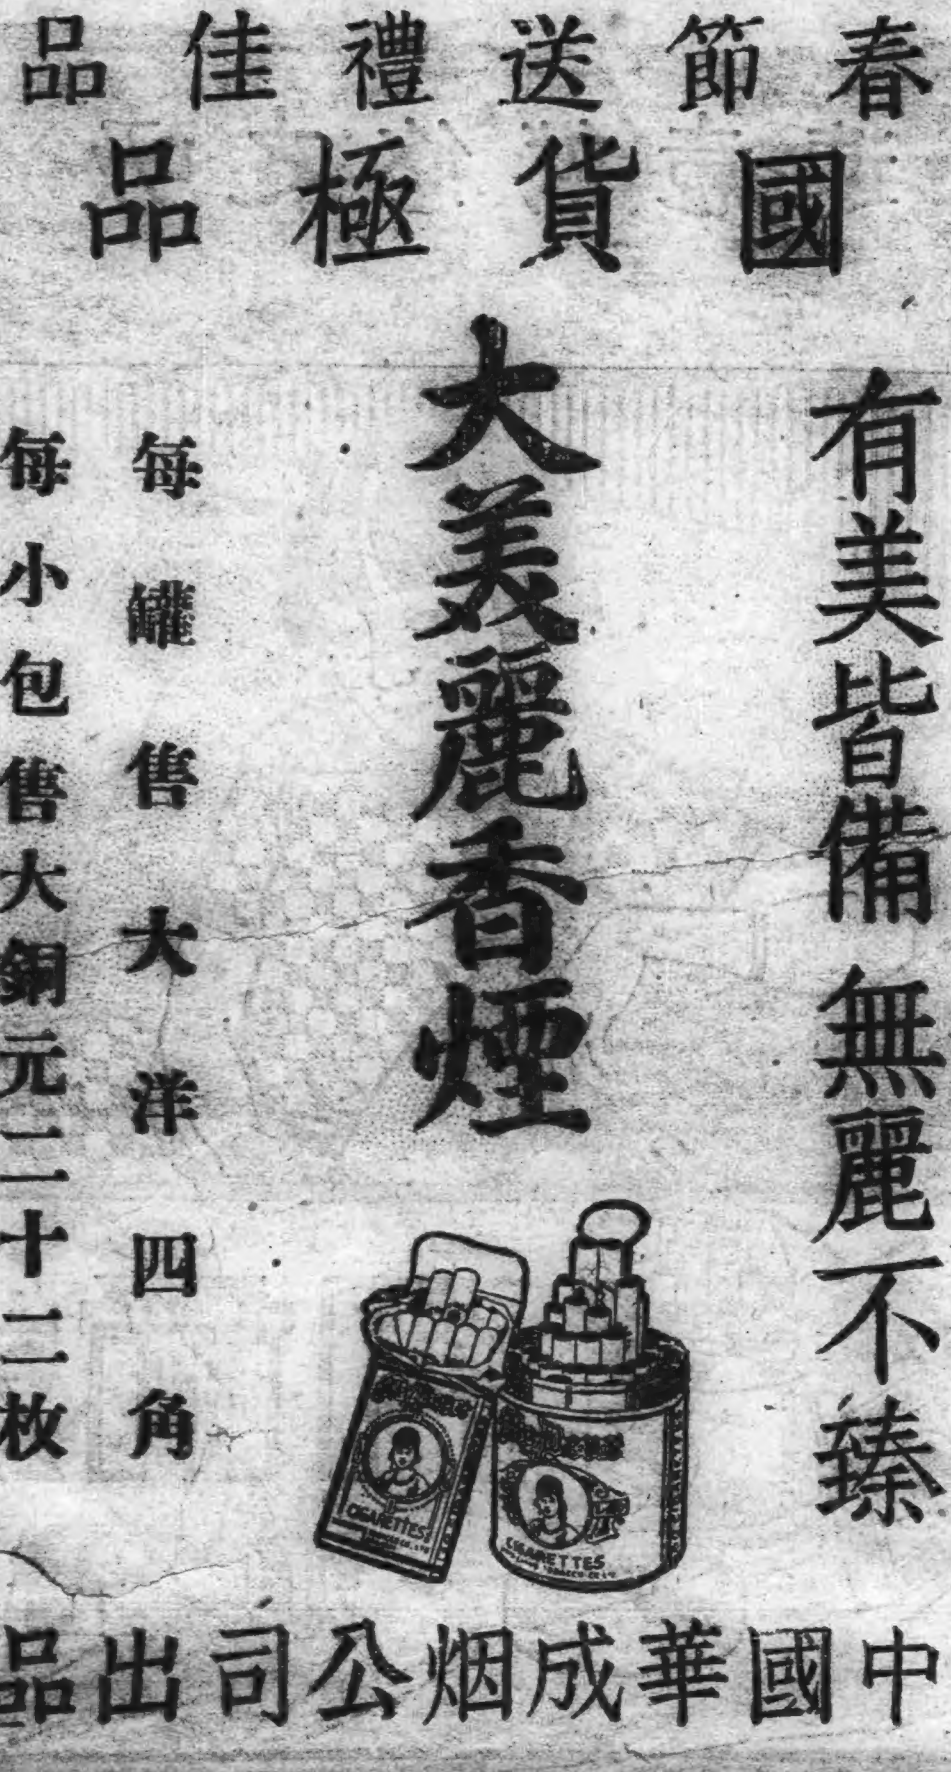 春節送禮佳品
國貨極品
有美皆備 無麗不臻
大美麗香煙
每罐售大洋四角
每小包售大銅元二十二枚
CIGARETTES
CIGARETTES
中國華成烟公司出品